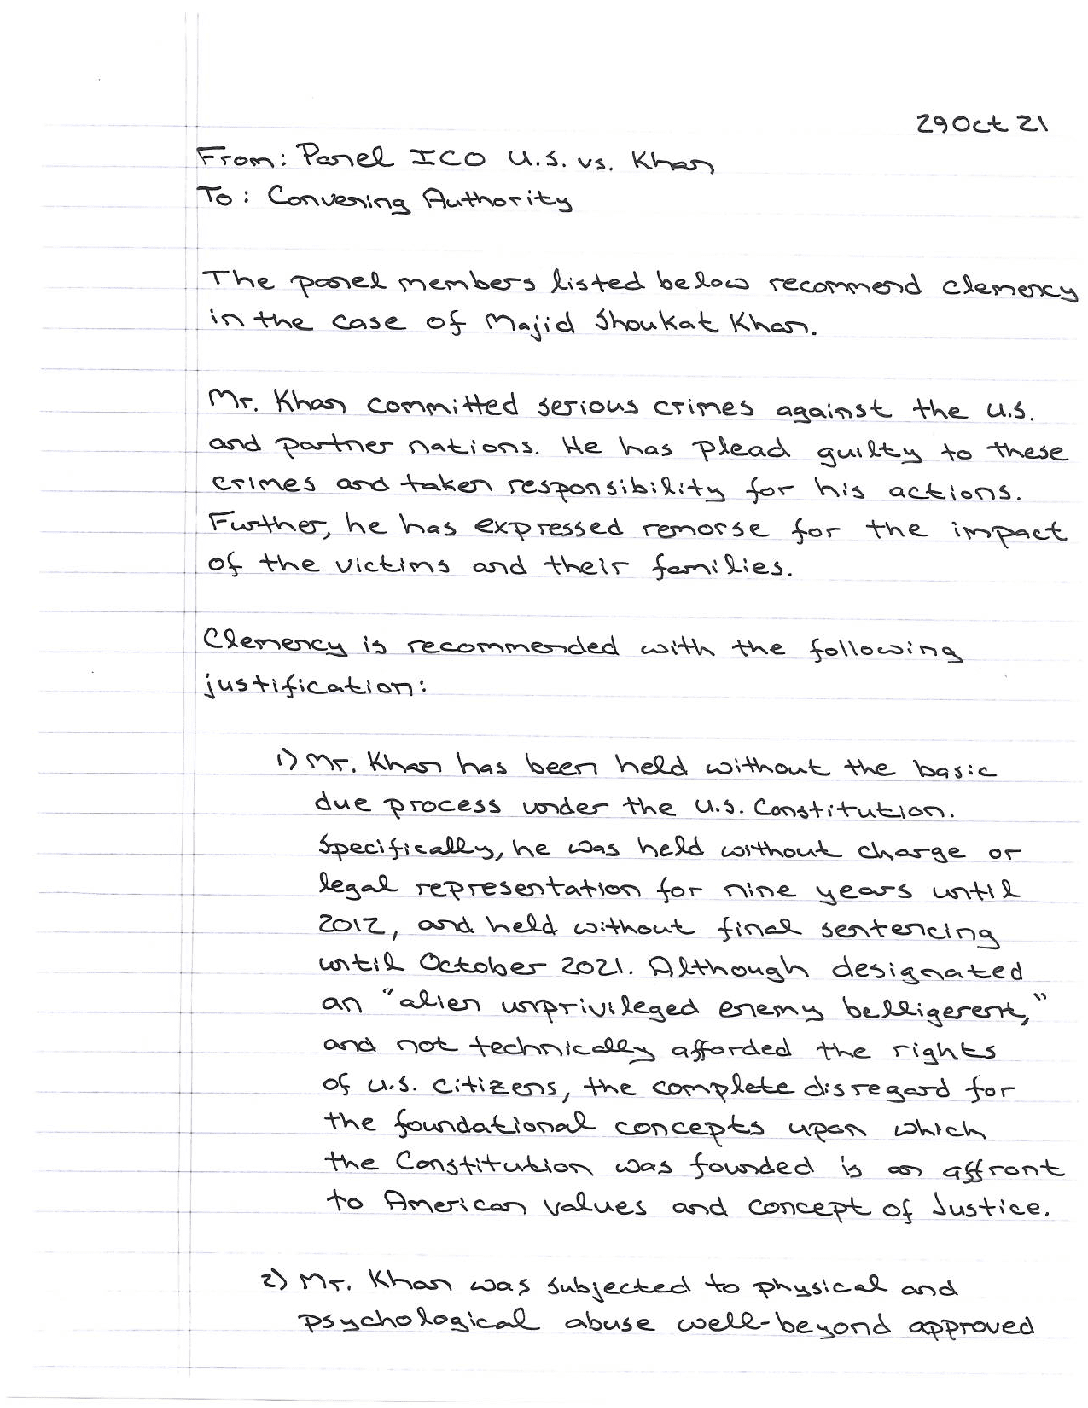 29 Oct 21
From: Panel ICO U.S. vs. Khan
To: Convening Authority
The panel members listed below recommend clemency
in the case of Majid Shoukat Khan.
Mr. Khan committed serious crimes against the U.S.
and partner nations. He has plead guilty to these
crimes and taken responsibility for his actions.
Further, he has expressed remorse for the impact
of the victims and their families.
Clemency is recommended with the following
justification:
1) Mr. Khan has been held without the basic
due process under the U.S. Constitution.
Specifically, he was held without charge or
legal representation for nine years until
2012, and held without final sentencing
until October 2021. Although designated
an "alien unprivileged enemy belligerent,"
and not technically afforded the rights
of U.S. citizens, the complete disregard for
the foundational concepts upon which
the Constitution was founded is an affront
to American values and concept of Justice.
2) Mr. Khan was subjected to physical and
psychological abuse well-beyond approved